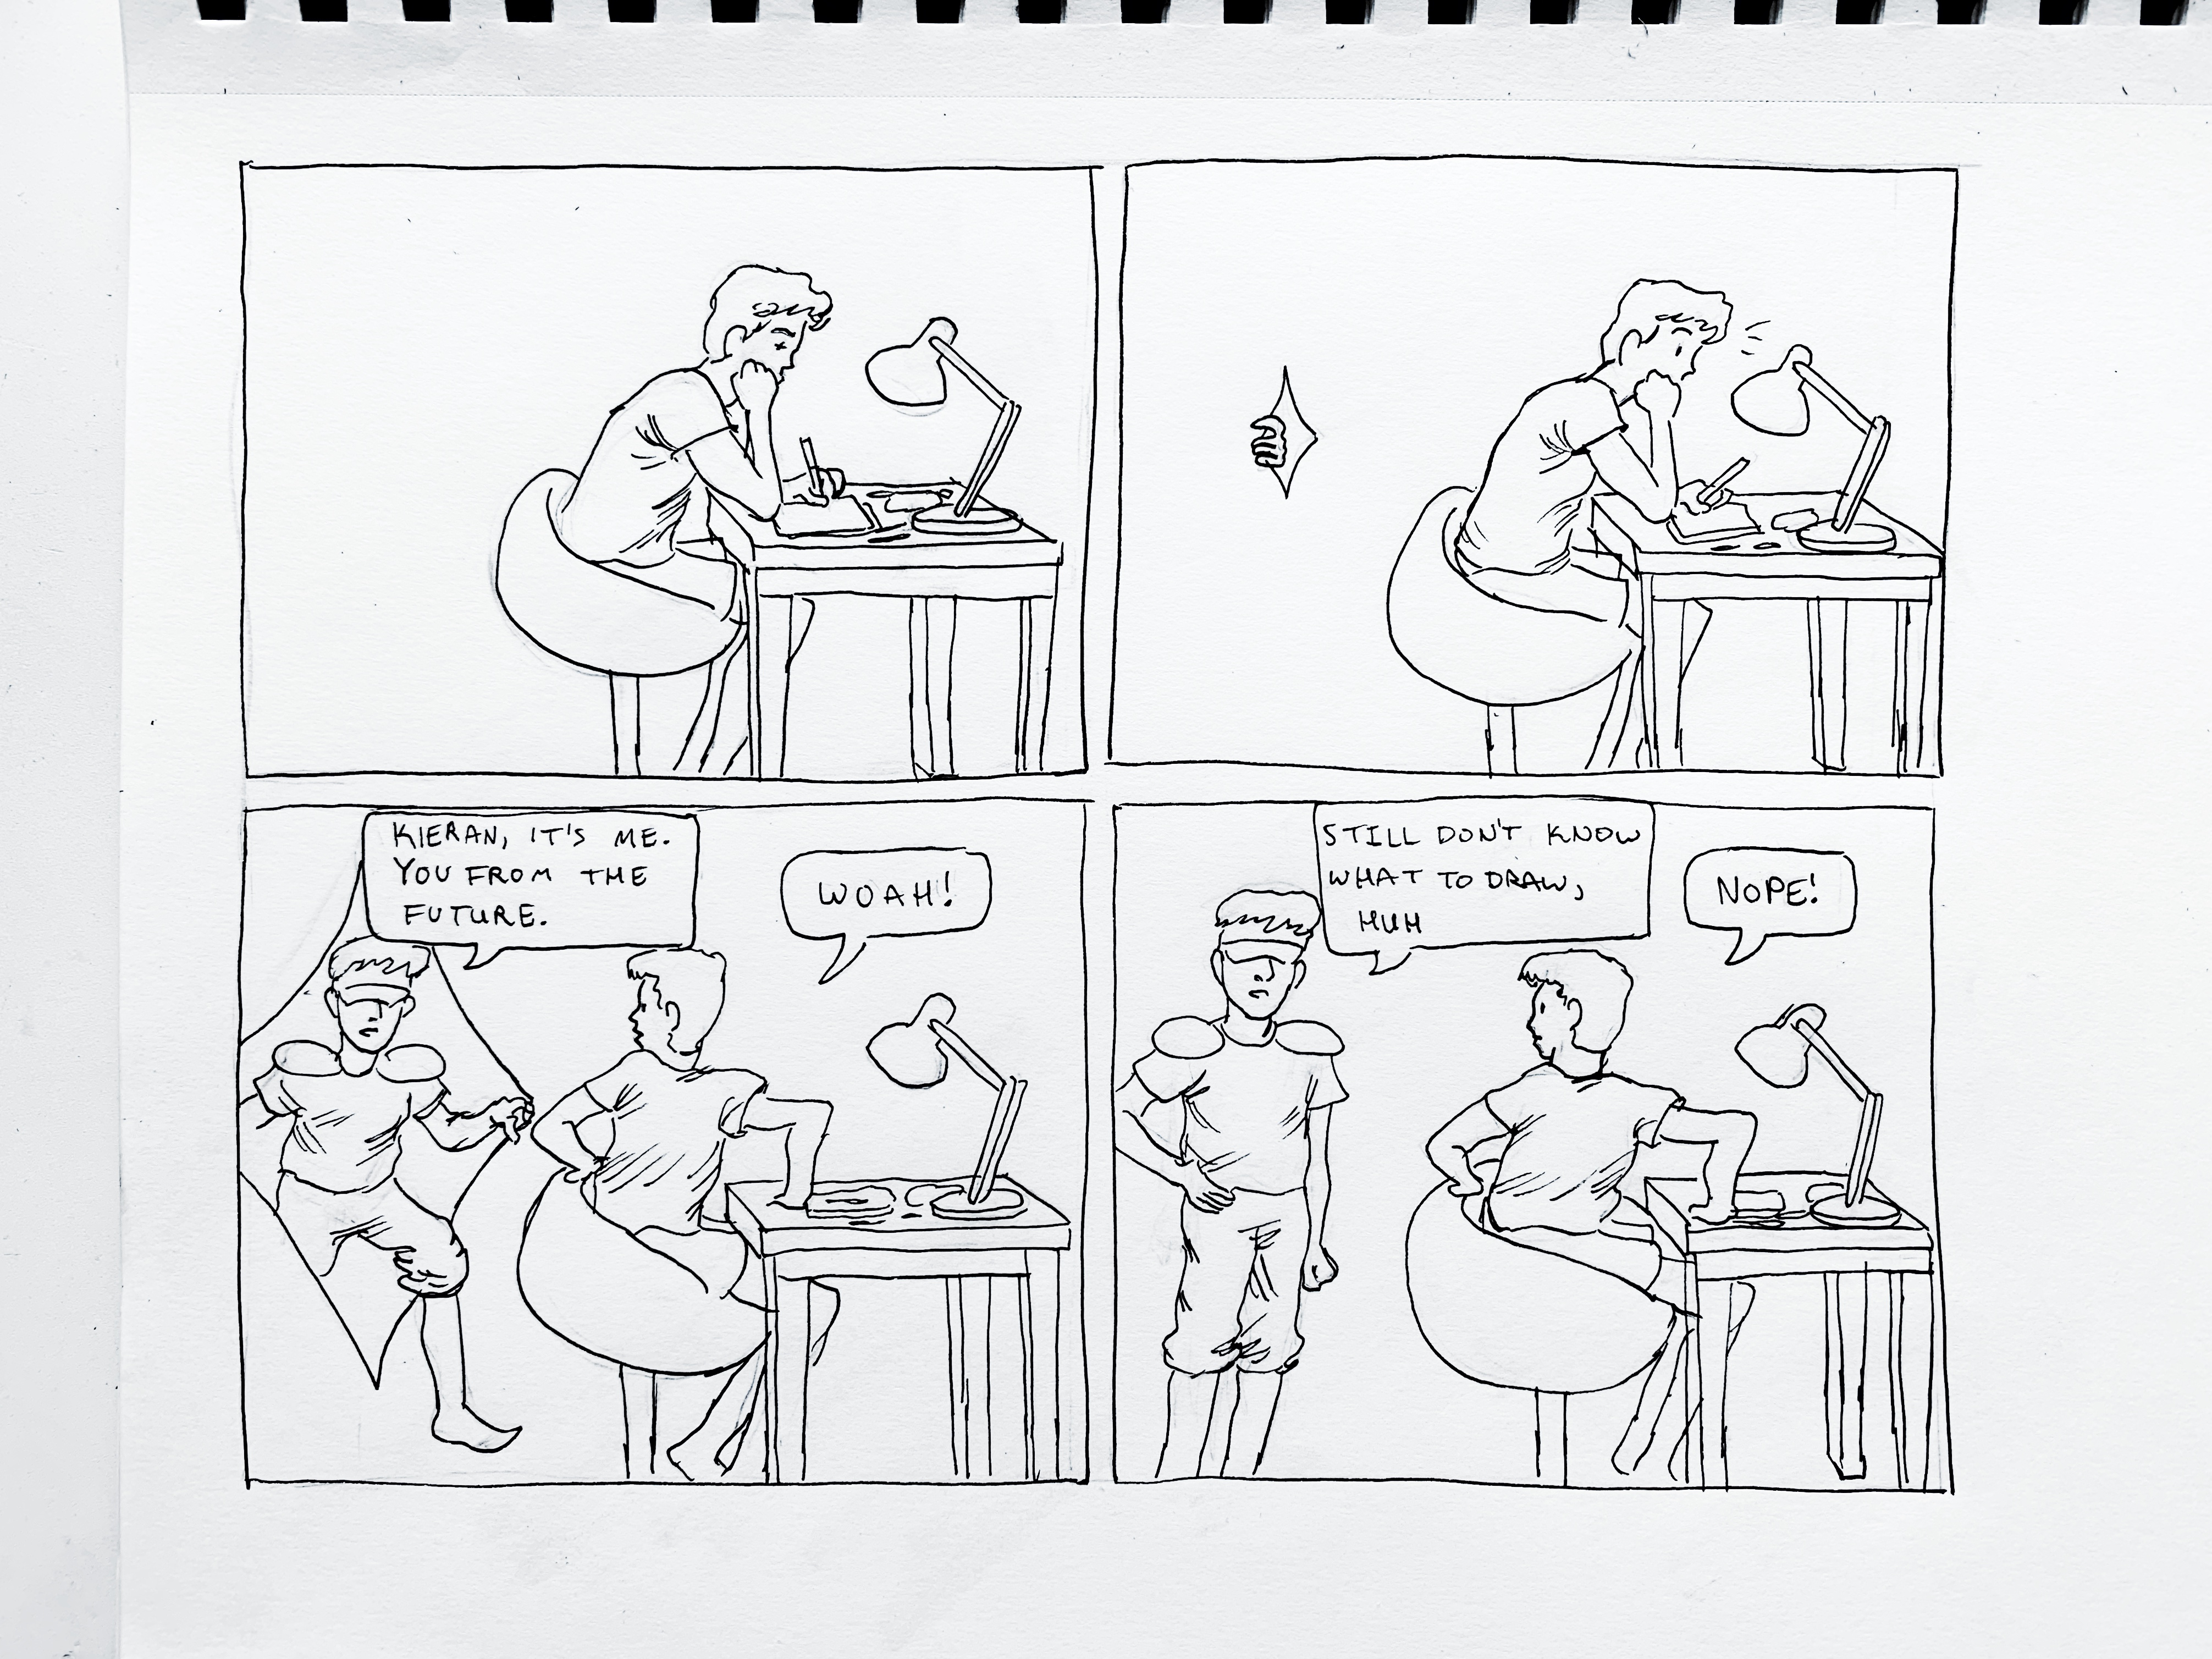 KIERAN, IT'S ME.
YOU FROM THE
FUTURE.
WOAH!
STILL DON'T KNOW
WHAT TO DRAW,
HUH
NOPE!